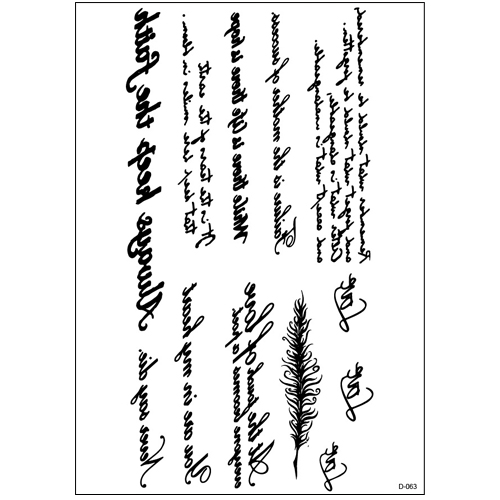 Always keep the Faith
Never say die.
It is the tears of the earth
that keep her smiles in bloom.
You are in my heart
While there is life there is hope
At the touch of love
everyone becomes a poet.
Failure is the mother of success
Remember what should be remembered,
and forget what should be
what is changeable,
and accept what is
Love
Love
Love
D-063